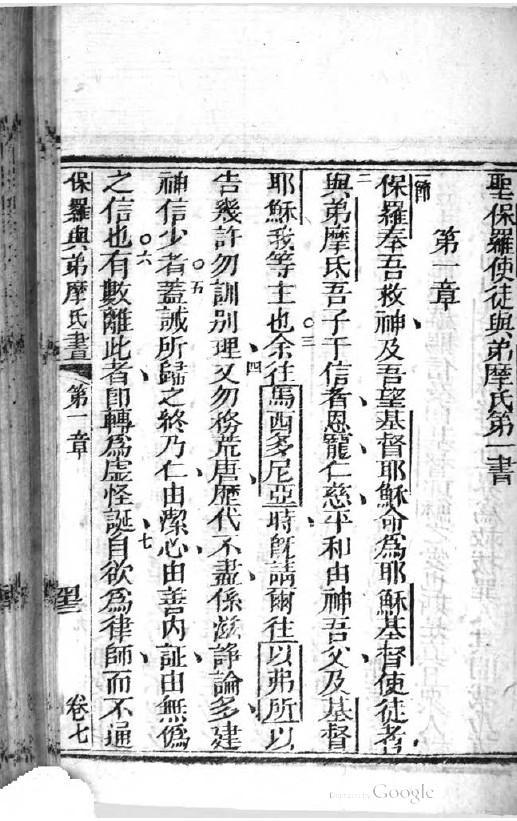 聖保羅使徒與弟摩氐第一書
第一章
一節保羅奉吾救神及吾望基督耶穌命為耶穌基督使徒者
二與弟摩氐吾子于信者恩寵仁慈平和由神吾父及基督
耶穌我等主也三余往馬西多尼亞時既請爾往以弗所以
告幾許勿訓別理四又勿務荒唐歷代不盡係滋諍論多建
神信少者五蓋誡所歸之終乃仁由潔心由善內証由無偽
之信也六有數離此者即轉為虛怪誕七自欲為律師而不通
保羅與弟摩氐書 第一章 卷七
Digitized by Google